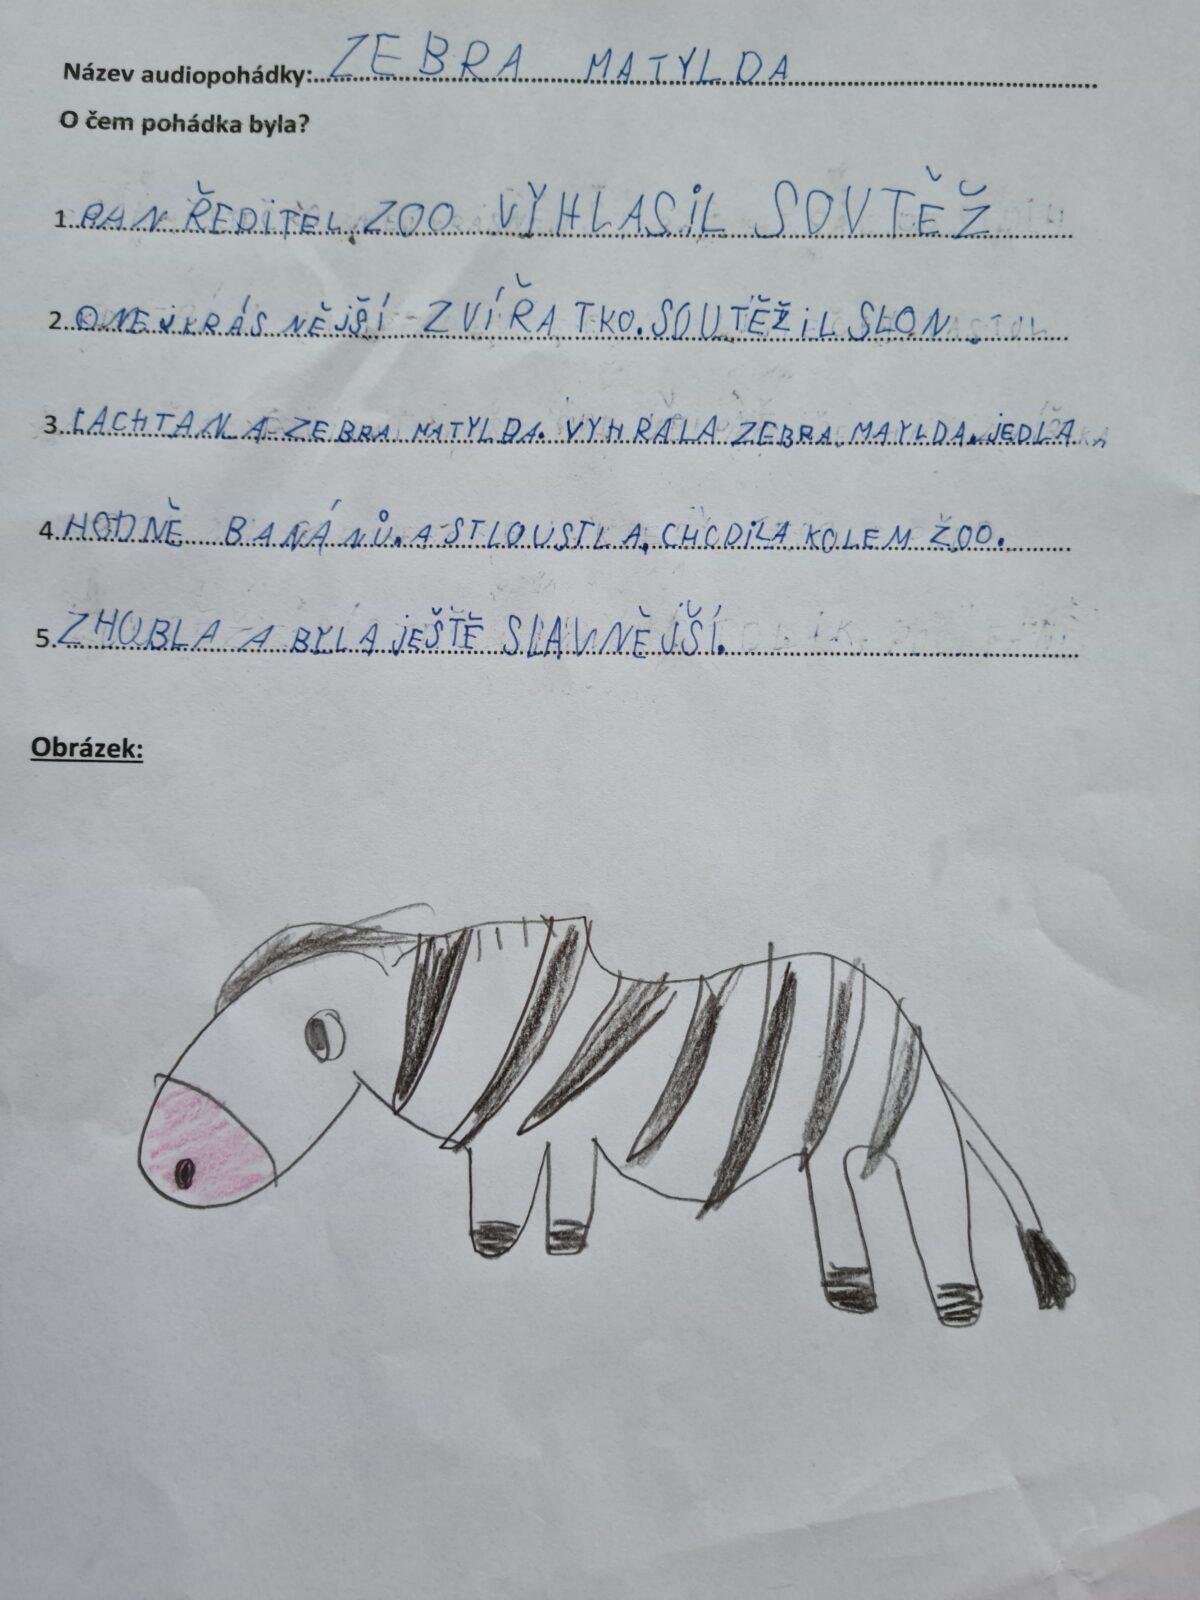 Název audiopohádky: ZEBRA MATYLDA
O čem pohádka byla?
1. PAN ŘEDITEL ZOO VYHLASIL SOVTĚŽ
2. O NEJKRÁSNĚJŠÍ ZVÍŘATKO. SOUTĚŽIL SLON
3. LACHTAN A ZEBRA MATYLDA. VYHRALA ZEBRA MAYLDA. JEDLA
4. HODNĚ BANÁNŮ. A STLOUSTLA, CHODILA KOLEM ŽOO.
5. ZHUBLA A BYLA JEŠTĚ SLAVNĚJŠÍ.
Obrázek: